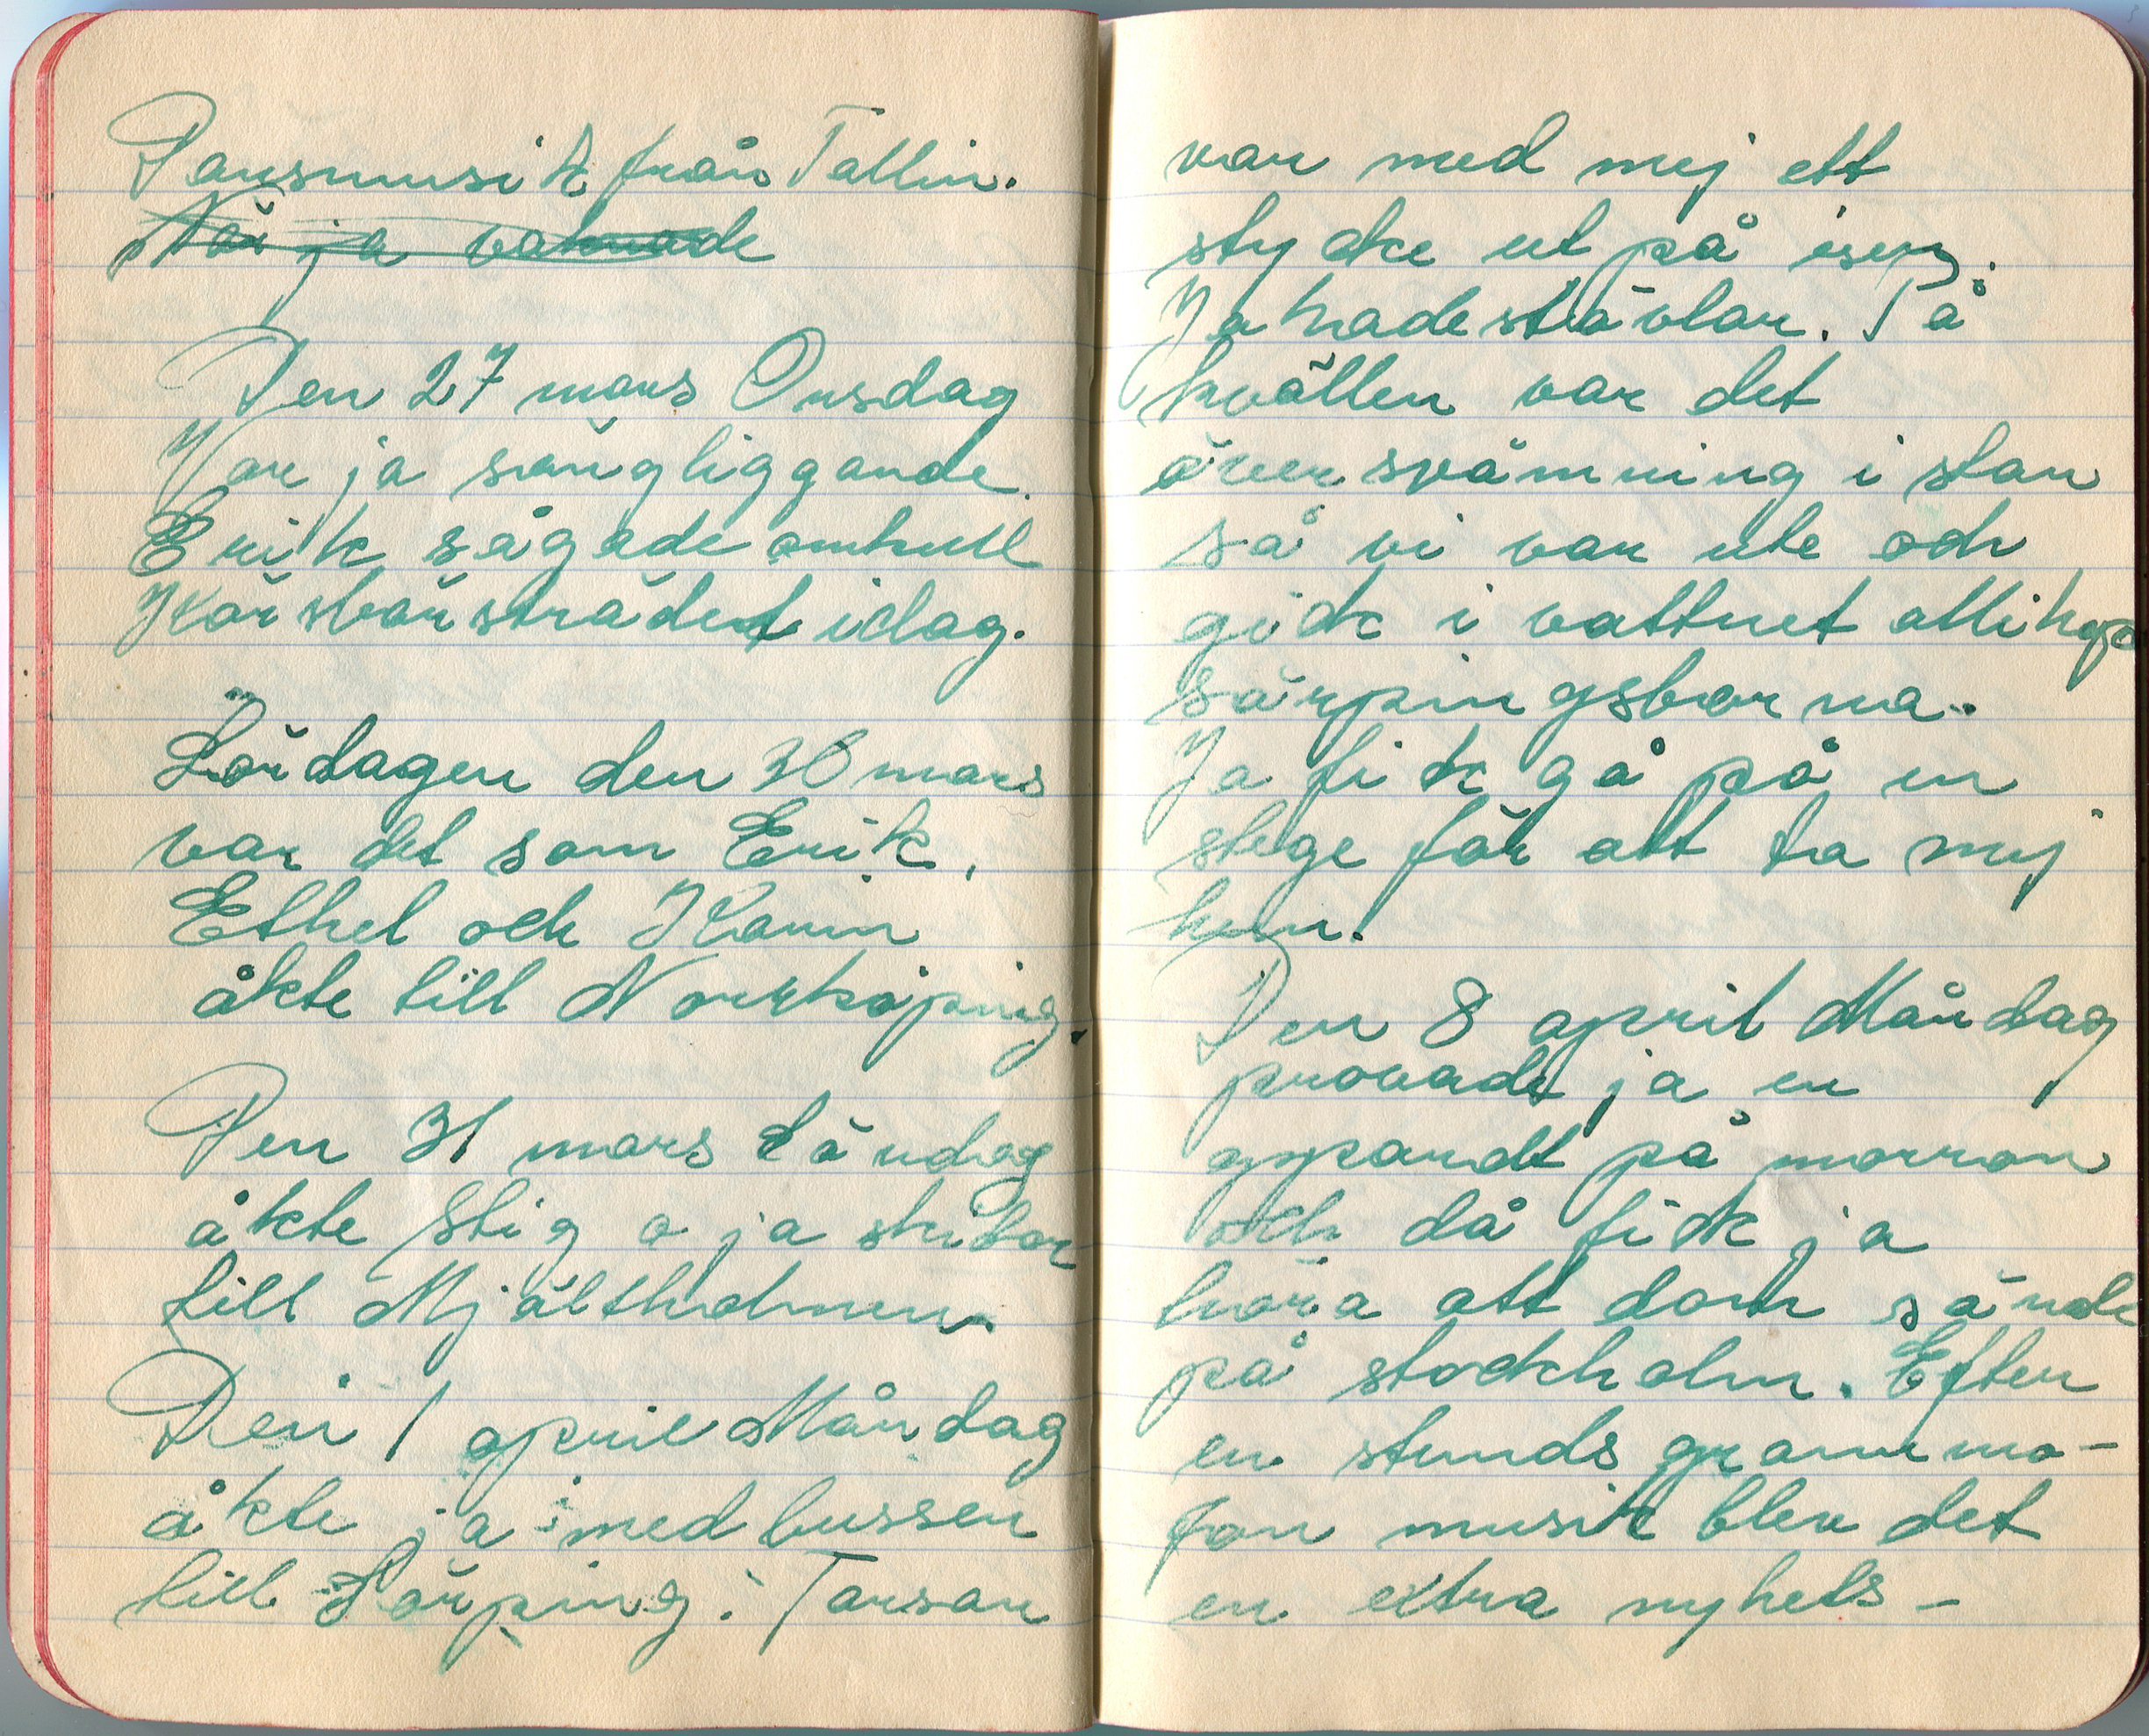 Dansmusik från Tallin.
När ja vaknade
Den 27 mars Onsdag
Var ja sängliggande.
Erik sågade omkull
Körsbärsträdet idag.
Lördagen den 30 mars
var det som Erik,
Ethel och Karin
åkte till Norrköping.
Den 31 mars Söndag
åkte Stig o ja skidor
till Mjältholmen.
Den 1 april Måndag
åkte ja med bussen
till Sörping. Tarsan
var med mej ett
stycke ut på isen.
Ja hade stövlar. På
kvällen var det
översvämning i stan
så vi var ute och
gick i vattnet allihopa
sörpingsborna.
Ja fick gå på en
stege för att ta mej
hem.
Den 8 april Måndag
provade ja en
apparat på morron
och då fick ja
höra att dom sände
på stockholm. Efter
en stunds grammo-
fon musik blev det
en extra nyhets-